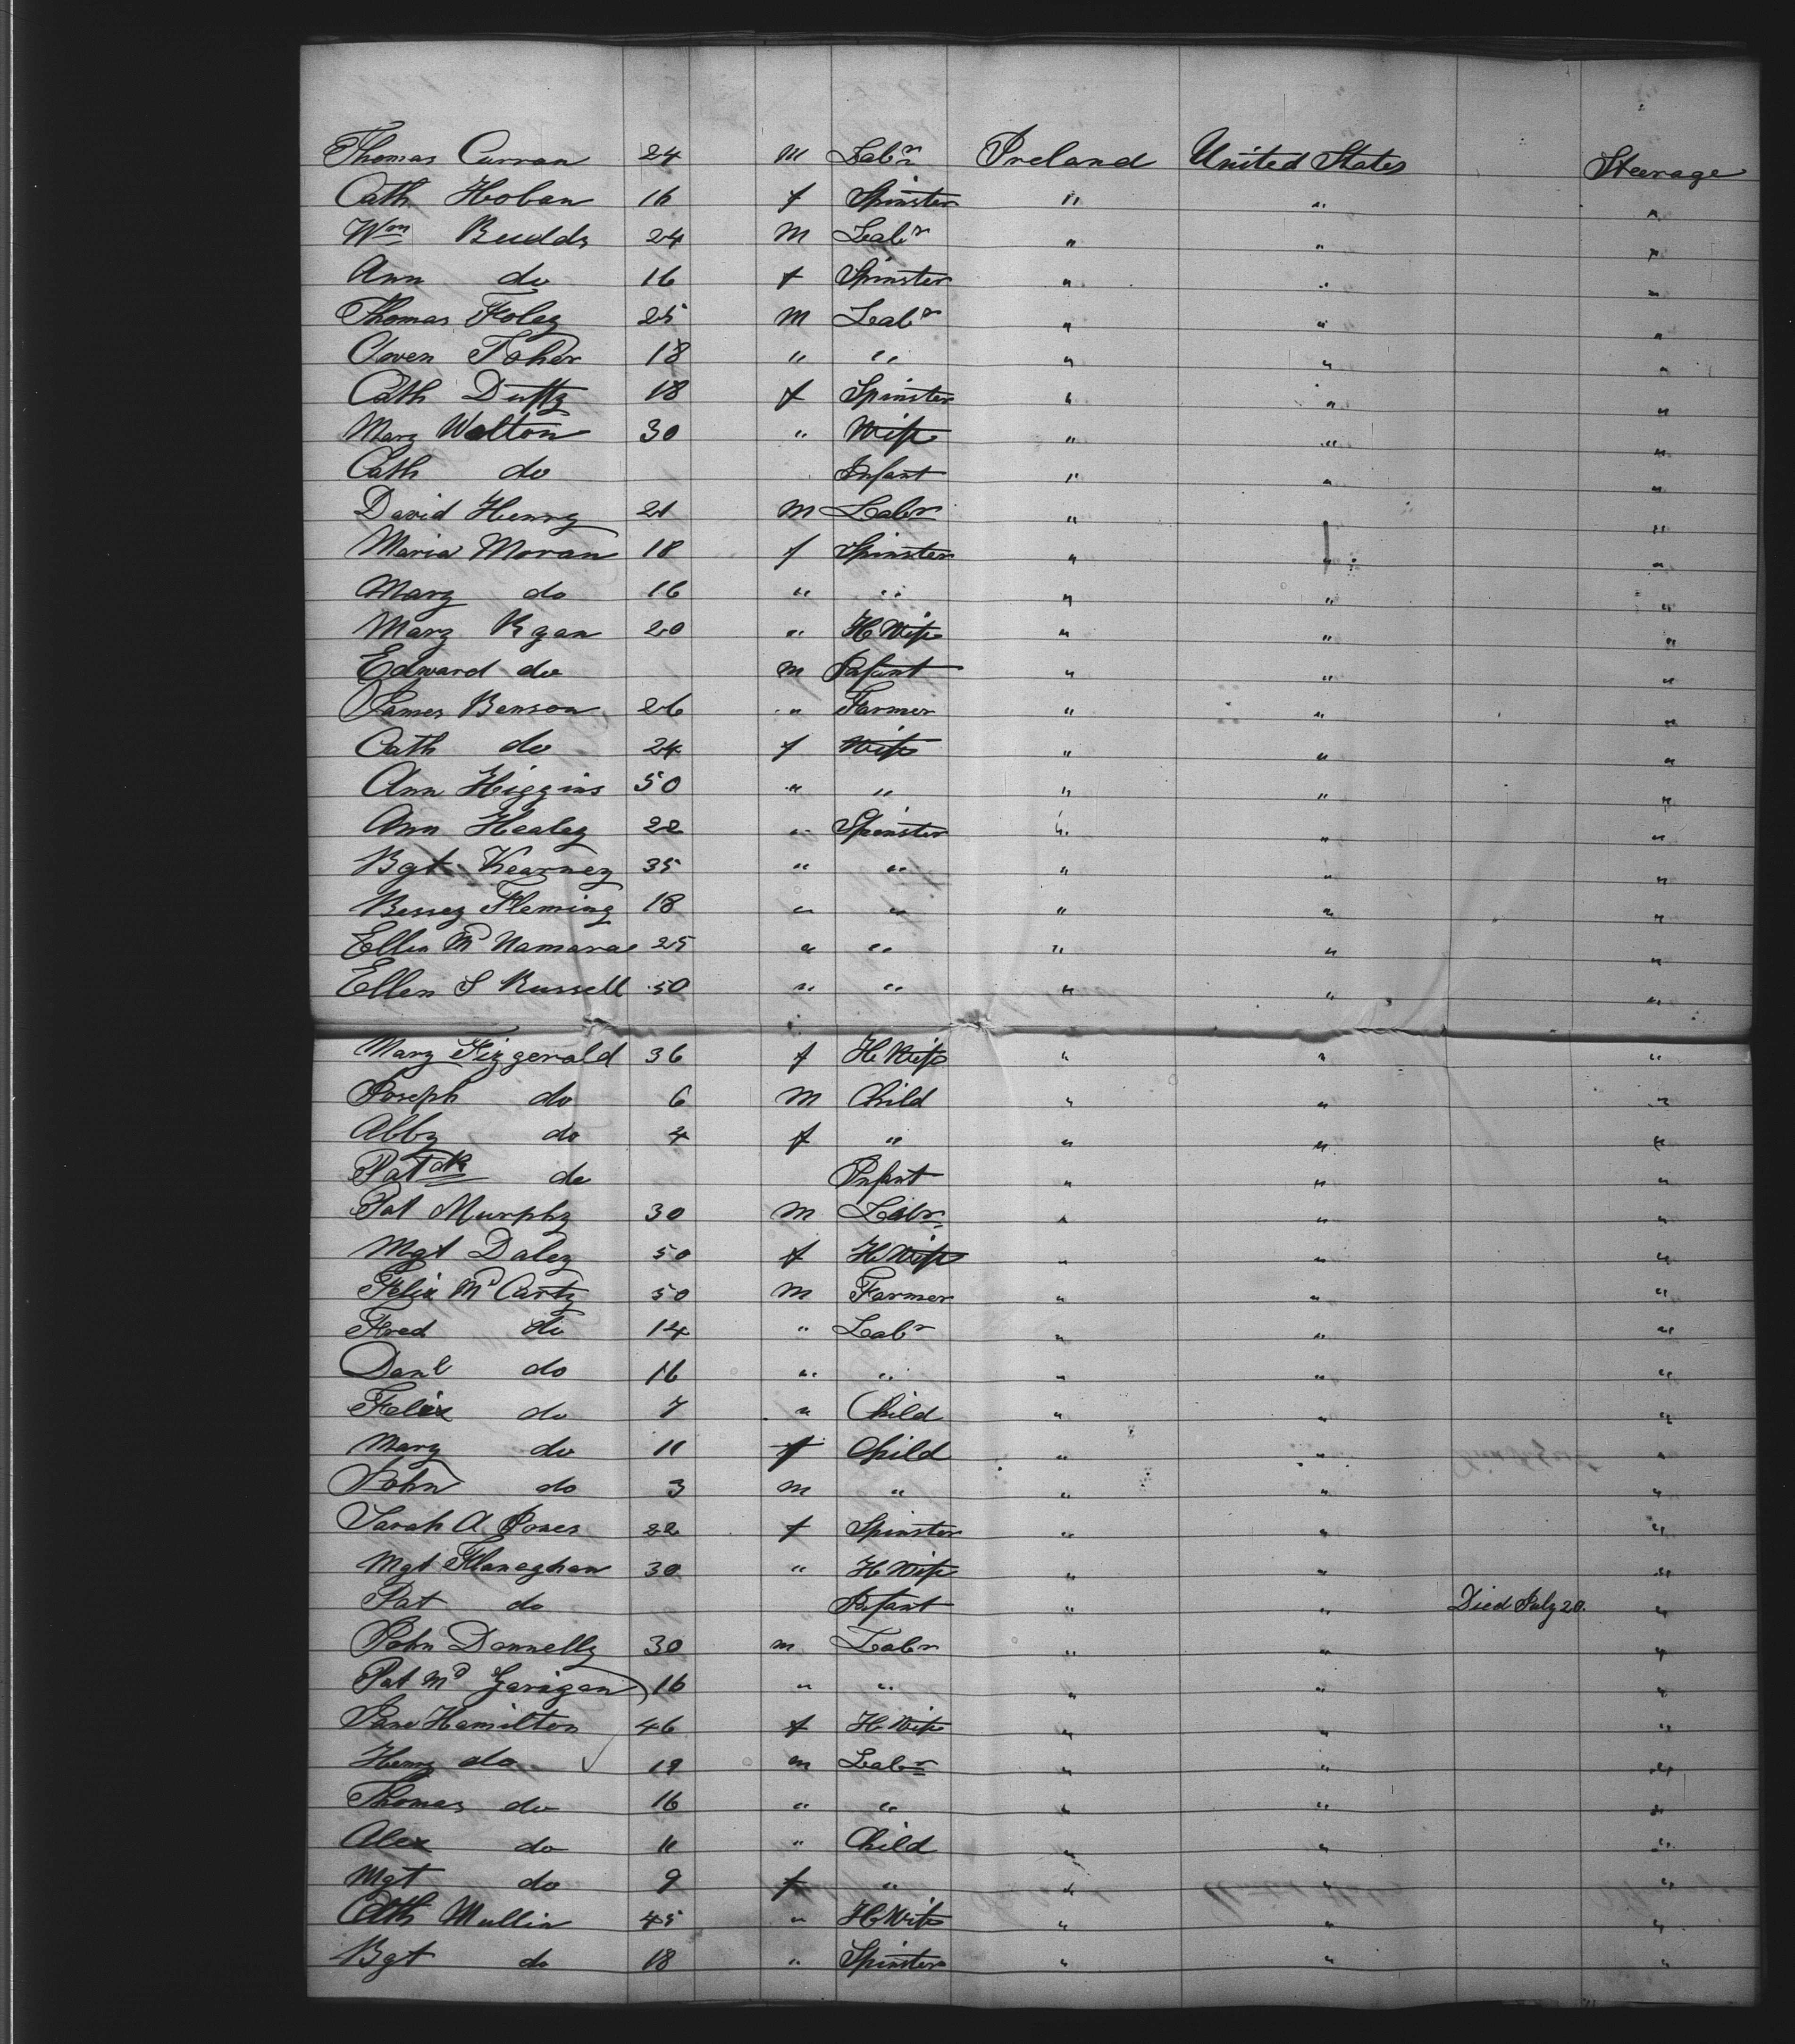 Thomas Curran 24 m Labr Ireland United States Steerage
Cath Hoban 16 f Spinster " " "
Wm Budds 24 m Labr " " "
Ann do 16 f Spinster " " "
Thomas Foley 25 m Labr " " "
Owen Taher 18 " " " " "
Cath Duffy 18 f Spinster " " "
Mary Walton 30 " Wife " " "
Cath do Infant " " "
David Henry 21 m Labr " " "
Maria Moran 18 f Spinster " " "
Mary do 16 " " " " "
Mary Ryan 20 " H Wife " " "
Edward do m Infant " " "
James Benson 26 " Farmer " " "
Cath do 24 f Wife " " "
Ann Higgins 50 " " " " "
Ann Healey 22 " Spinster " " "
Bgt Kearney 35 " " " " "
Bessey Fleming 18 " " " " "
Ellen Mc Namara 25 " " " " "
Ellen S Russell 50 " " " " "
Mary Fizgerald 36 f H Wife " " "
Joseph do 6 m Child " " "
Abby do 4 f " " " "
Patck do Infant " " "
Pat Murphy 30 m Labr " " "
Mgt Daley 50 f H Wife " " "
Felix Mc Carty 50 m Farmer " " "
Fred do 14 " Labr " " "
Danl do 16 " " " " "
Felix do 7 " Child " " "
Mary do 11 f Child " " "
John do 3 m " " " "
Sarah A Jones 22 f Spinster " " "
Mgt Flanaghan 30 " H Wife " " "
Pat do Infant " " Died July 20. "
John Donnelly 30 m Labr " " "
Pat Mc Garigan 16 " " " " "
Jane Hamilton 46 f H Wife " " "
Henry do 19 m Labr " " "
Thomas do 16 " " " " "
Alex do 11 " Child " " "
Mgt do 9 f " " " "
Cath Mullin 45 " H Wife " " "
Bgt do 18 " Spinster " " "